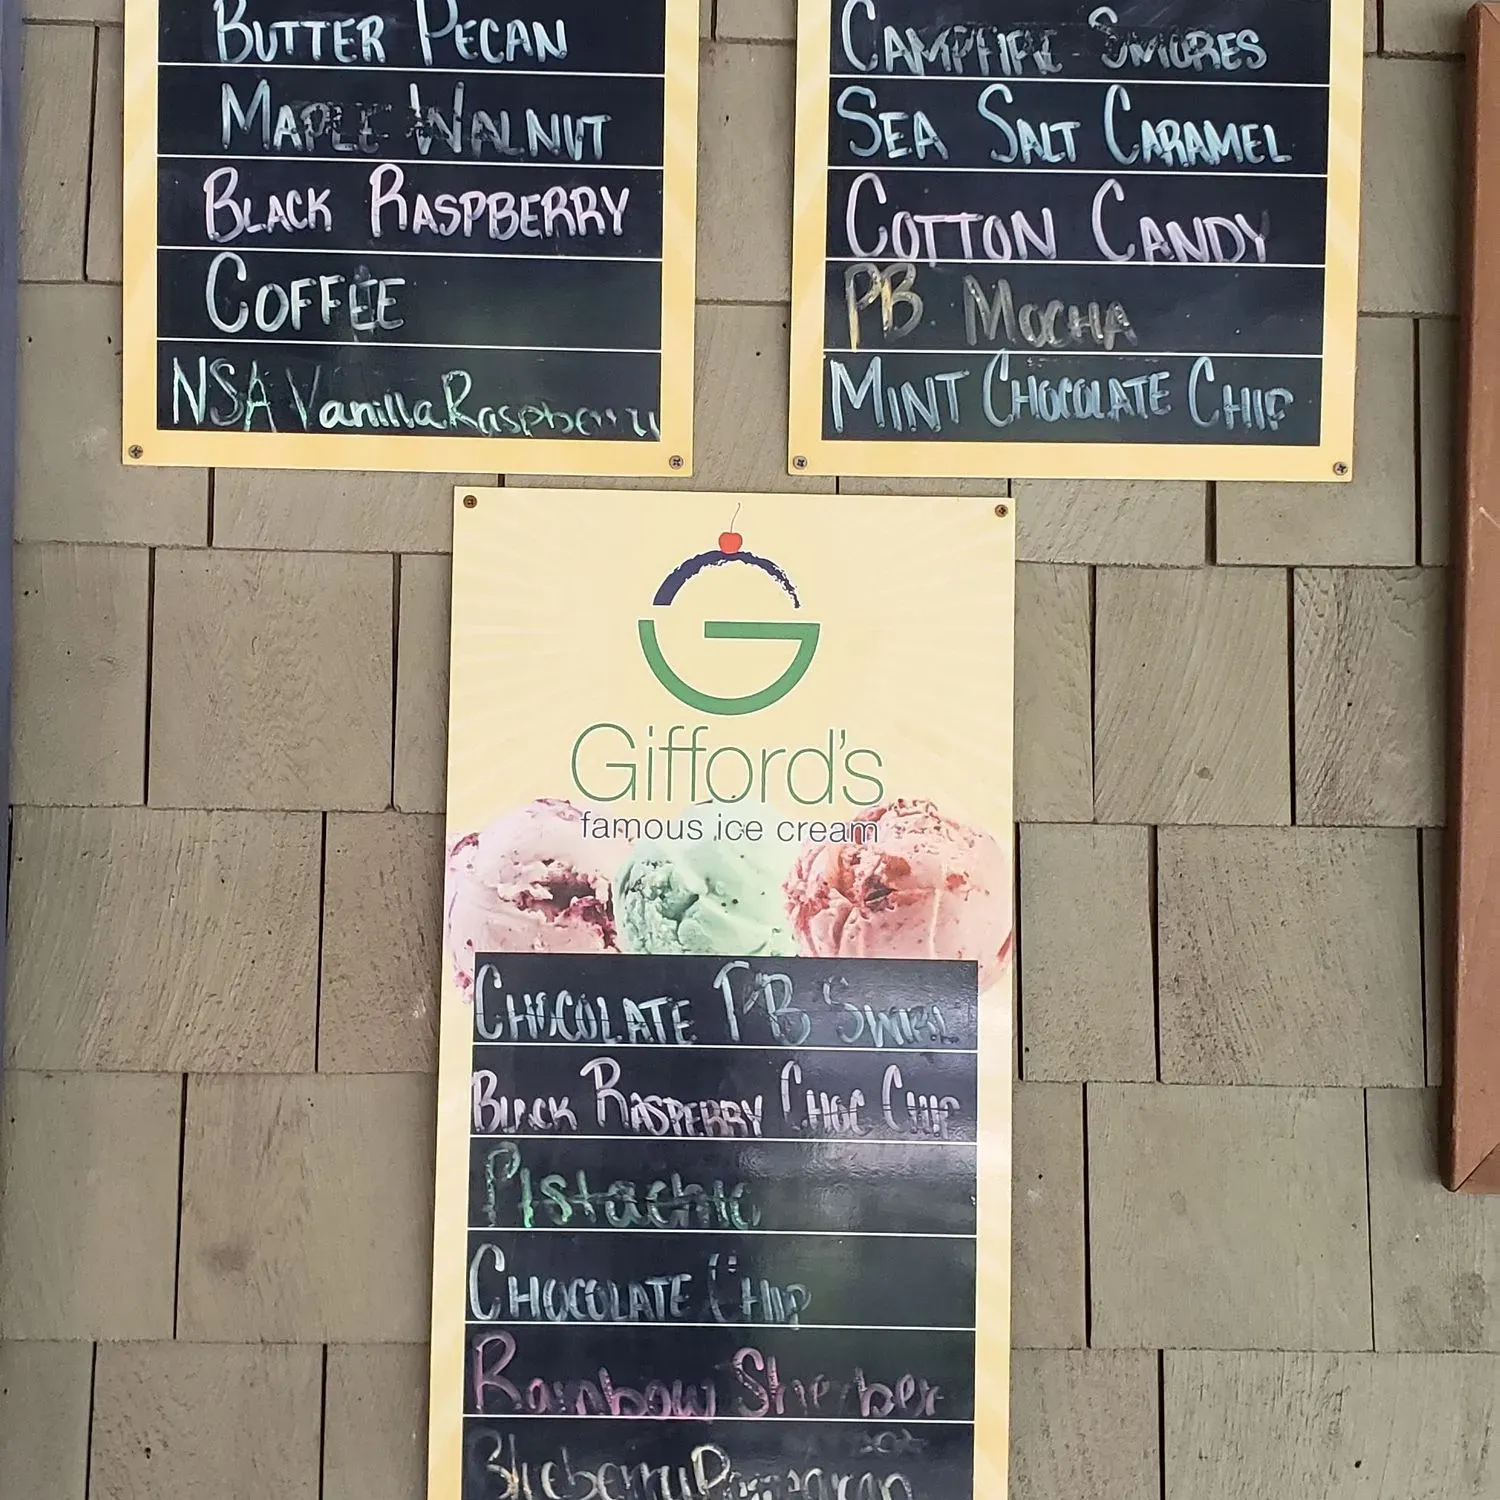 BUTTER PECAN
MAPLE WALNUT
BLACK RASPBERRY
COFFEE
NSA Vanilla Raspberry
CAMPFIRE SMORES
SEA SALT CARAMEL
COTTON CANDY
PB MOCHA
MINT CHOCOLATE CHIP
G
Gifford's
famous ice cream
CHOCOLATE PB SWIRL
BLACK RASPBERRY CHOC CHIP
PIstachio
CHOCOLATE CHIP
Rainbow Sherbet
Blueberry